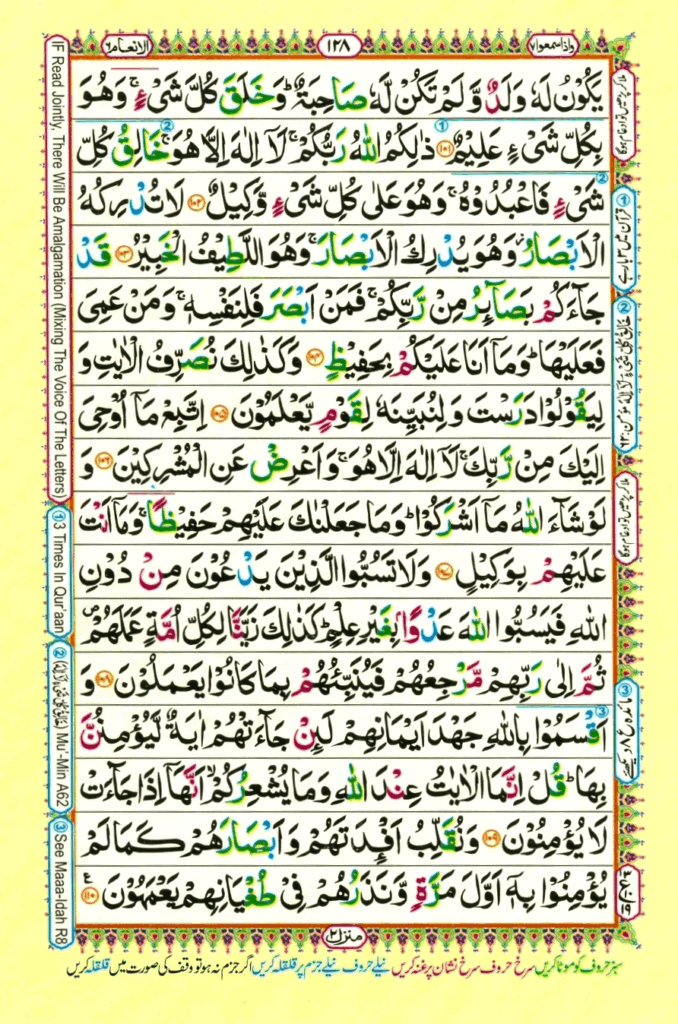 واذا سمعوا ٧
١٢٨
الانعام ٦
يَكُوْنُ لَهٗ وَلَدٌ وَّلَمْ تَكُنْ لَّهٗ صَاحِبَةٌ ؕ وَخَلَقَ كُلَّ شَیْءٍ ۚ وَهُوَ
بِكُلِّ شَیْءٍ عَلِيْمٌ ﴿۱۰۱﴾ ذٰلِكُمُ اللّٰهُ رَبُّكُمْ ۚ لَاۤ اِلٰهَ اِلَّا هُوَ ۚ خَالِقُ كُلِّ
شَیْءٍ فَاعْبُدُوْهُ ۚ وَهُوَ عَلٰی كُلِّ شَیْءٍ وَّكِيْلٌ ﴿۱۰۲﴾ لَا تُدْرِكُهُ
الْاَبْصَارُ ؗ وَهُوَ يُدْرِكُ الْاَبْصَارَ ۚ وَهُوَ اللَّطِيْفُ الْخَبِيْرُ ﴿۱۰۳﴾ قَدْ
جَآءَكُمْ بَصَآئِرُ مِنْ رَّبِّكُمْ ۚ فَمَنْ اَبْصَرَ فَلِنَفْسِهٖ ۚ وَمَنْ عَمِیَ
فَعَلَيْهَا ؕ وَمَاۤ اَنَا عَلَيْكُمْ بِحَفِيْظٍ ﴿۱۰۴﴾ وَكَذٰلِكَ نُصَرِّفُ الْاٰيٰتِ وَ
لِيَقُوْلُوْا دَرَسْتَ وَلِنُبَيِّنَهٗ لِقَوْمٍ يَّعْلَمُوْنَ ﴿۱۰۵﴾ اِتَّبِعْ مَاۤ اُوْحِیَ
اِلَيْكَ مِنْ رَّبِّكَ ۚ لَاۤ اِلٰهَ اِلَّا هُوَ ۚ وَاَعْرِضْ عَنِ الْمُشْرِكِيْنَ ﴿۱۰۶﴾ وَ
لَوْ شَآءَ اللّٰهُ مَاۤ اَشْرَكُوْا ؕ وَمَا جَعَلْنٰكَ عَلَيْهِمْ حَفِيْظًا ۚ وَمَاۤ اَنْتَ
عَلَيْهِمْ بِوَكِيْلٍ ﴿۱۰۷﴾ وَلَا تَسُبُّوا الَّذِيْنَ يَدْعُوْنَ مِنْ دُوْنِ
اللّٰهِ فَيَسُبُّوا اللّٰهَ عَدْوًۢا بِغَيْرِ عِلْمٍ ؕ كَذٰلِكَ زَيَّنَّا لِكُلِّ اُمَّةٍ عَمَلَهُمْ ۪
ثُمَّ اِلٰی رَبِّهِمْ مَّرْجِعُهُمْ فَيُنَبِّئُهُمْ بِمَا كَانُوْا يَعْمَلُوْنَ ﴿۱۰۸﴾ وَ
اَقْسَمُوْا بِاللّٰهِ جَهْدَ اَيْمَانِهِمْ لَئِنْ جَآءَتْهُمْ اٰيَةٌ لَّيُؤْمِنُنَّ
بِهَا ؕ قُلْ اِنَّمَا الْاٰيٰتُ عِنْدَ اللّٰهِ وَمَا يُشْعِرُكُمْ ۙ اَنَّهَاۤ اِذَا جَآءَتْ
لَا يُؤْمِنُوْنَ ﴿۱۰۹﴾ وَنُقَلِّبُ اَفْـِٕدَتَهُمْ وَاَبْصَارَهُمْ كَمَا لَمْ
يُؤْمِنُوْا بِهٖۤ اَوَّلَ مَرَّةٍ وَّنَذَرُهُمْ فِیْ طُغْيَانِهِمْ يَعْمَهُوْنَ ﴿۱۱۰﴾
منزل ٢
سبز حروف کو موٹا کریں سرخ حروف سرخ نشان پر غنہ کریں نیلے حروف نیلے جزم پر قلقلہ کریں اگر جزم نہ ہو تو وقف کی صورت میں قلقلہ کریں
ملا کر پڑھیں تو ادغام ہوگا
① قرآن میں ۳ بار ہے
ملا کر پڑھیں تو ادغام ہوگا
IF Read Jointly, There Will Be Amalgamation (Mixing The Voice Of The Letters)
① 3 Times In Qur'aan
② Mu'-Min A62
③ See Maaa-Idah R8